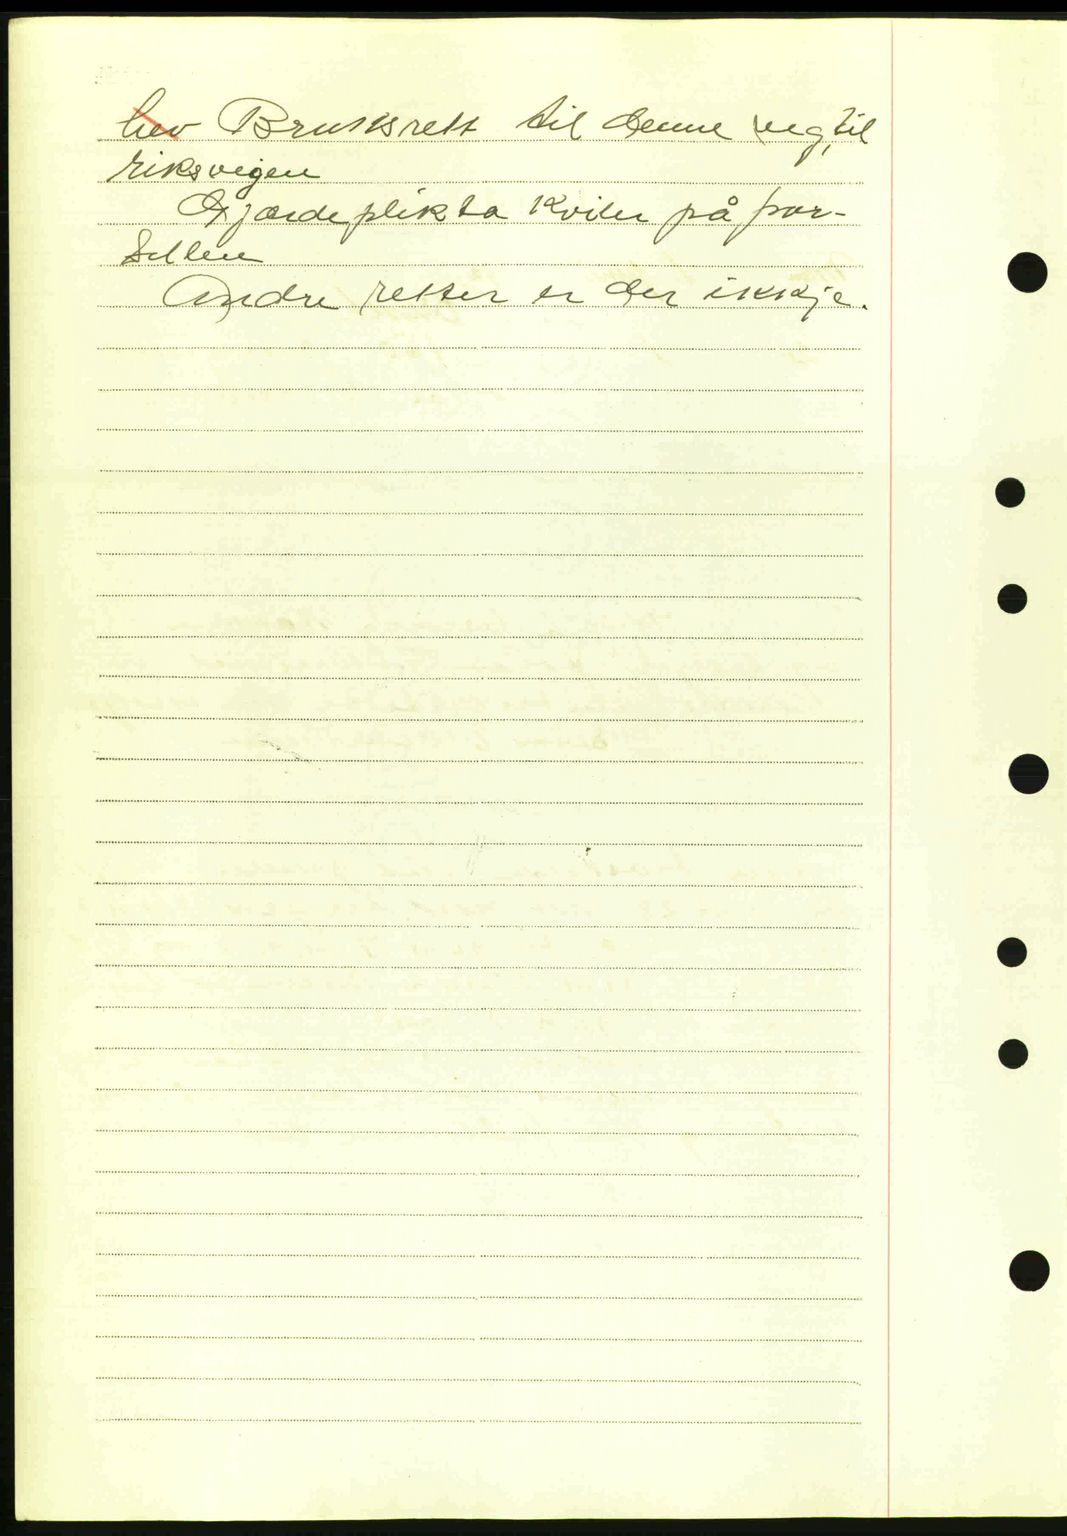 hev Bruksrett til denne veg, til
riksvegen
Gjærdeplikta kviler på par-
sellen
Andre retter er der ikkje.